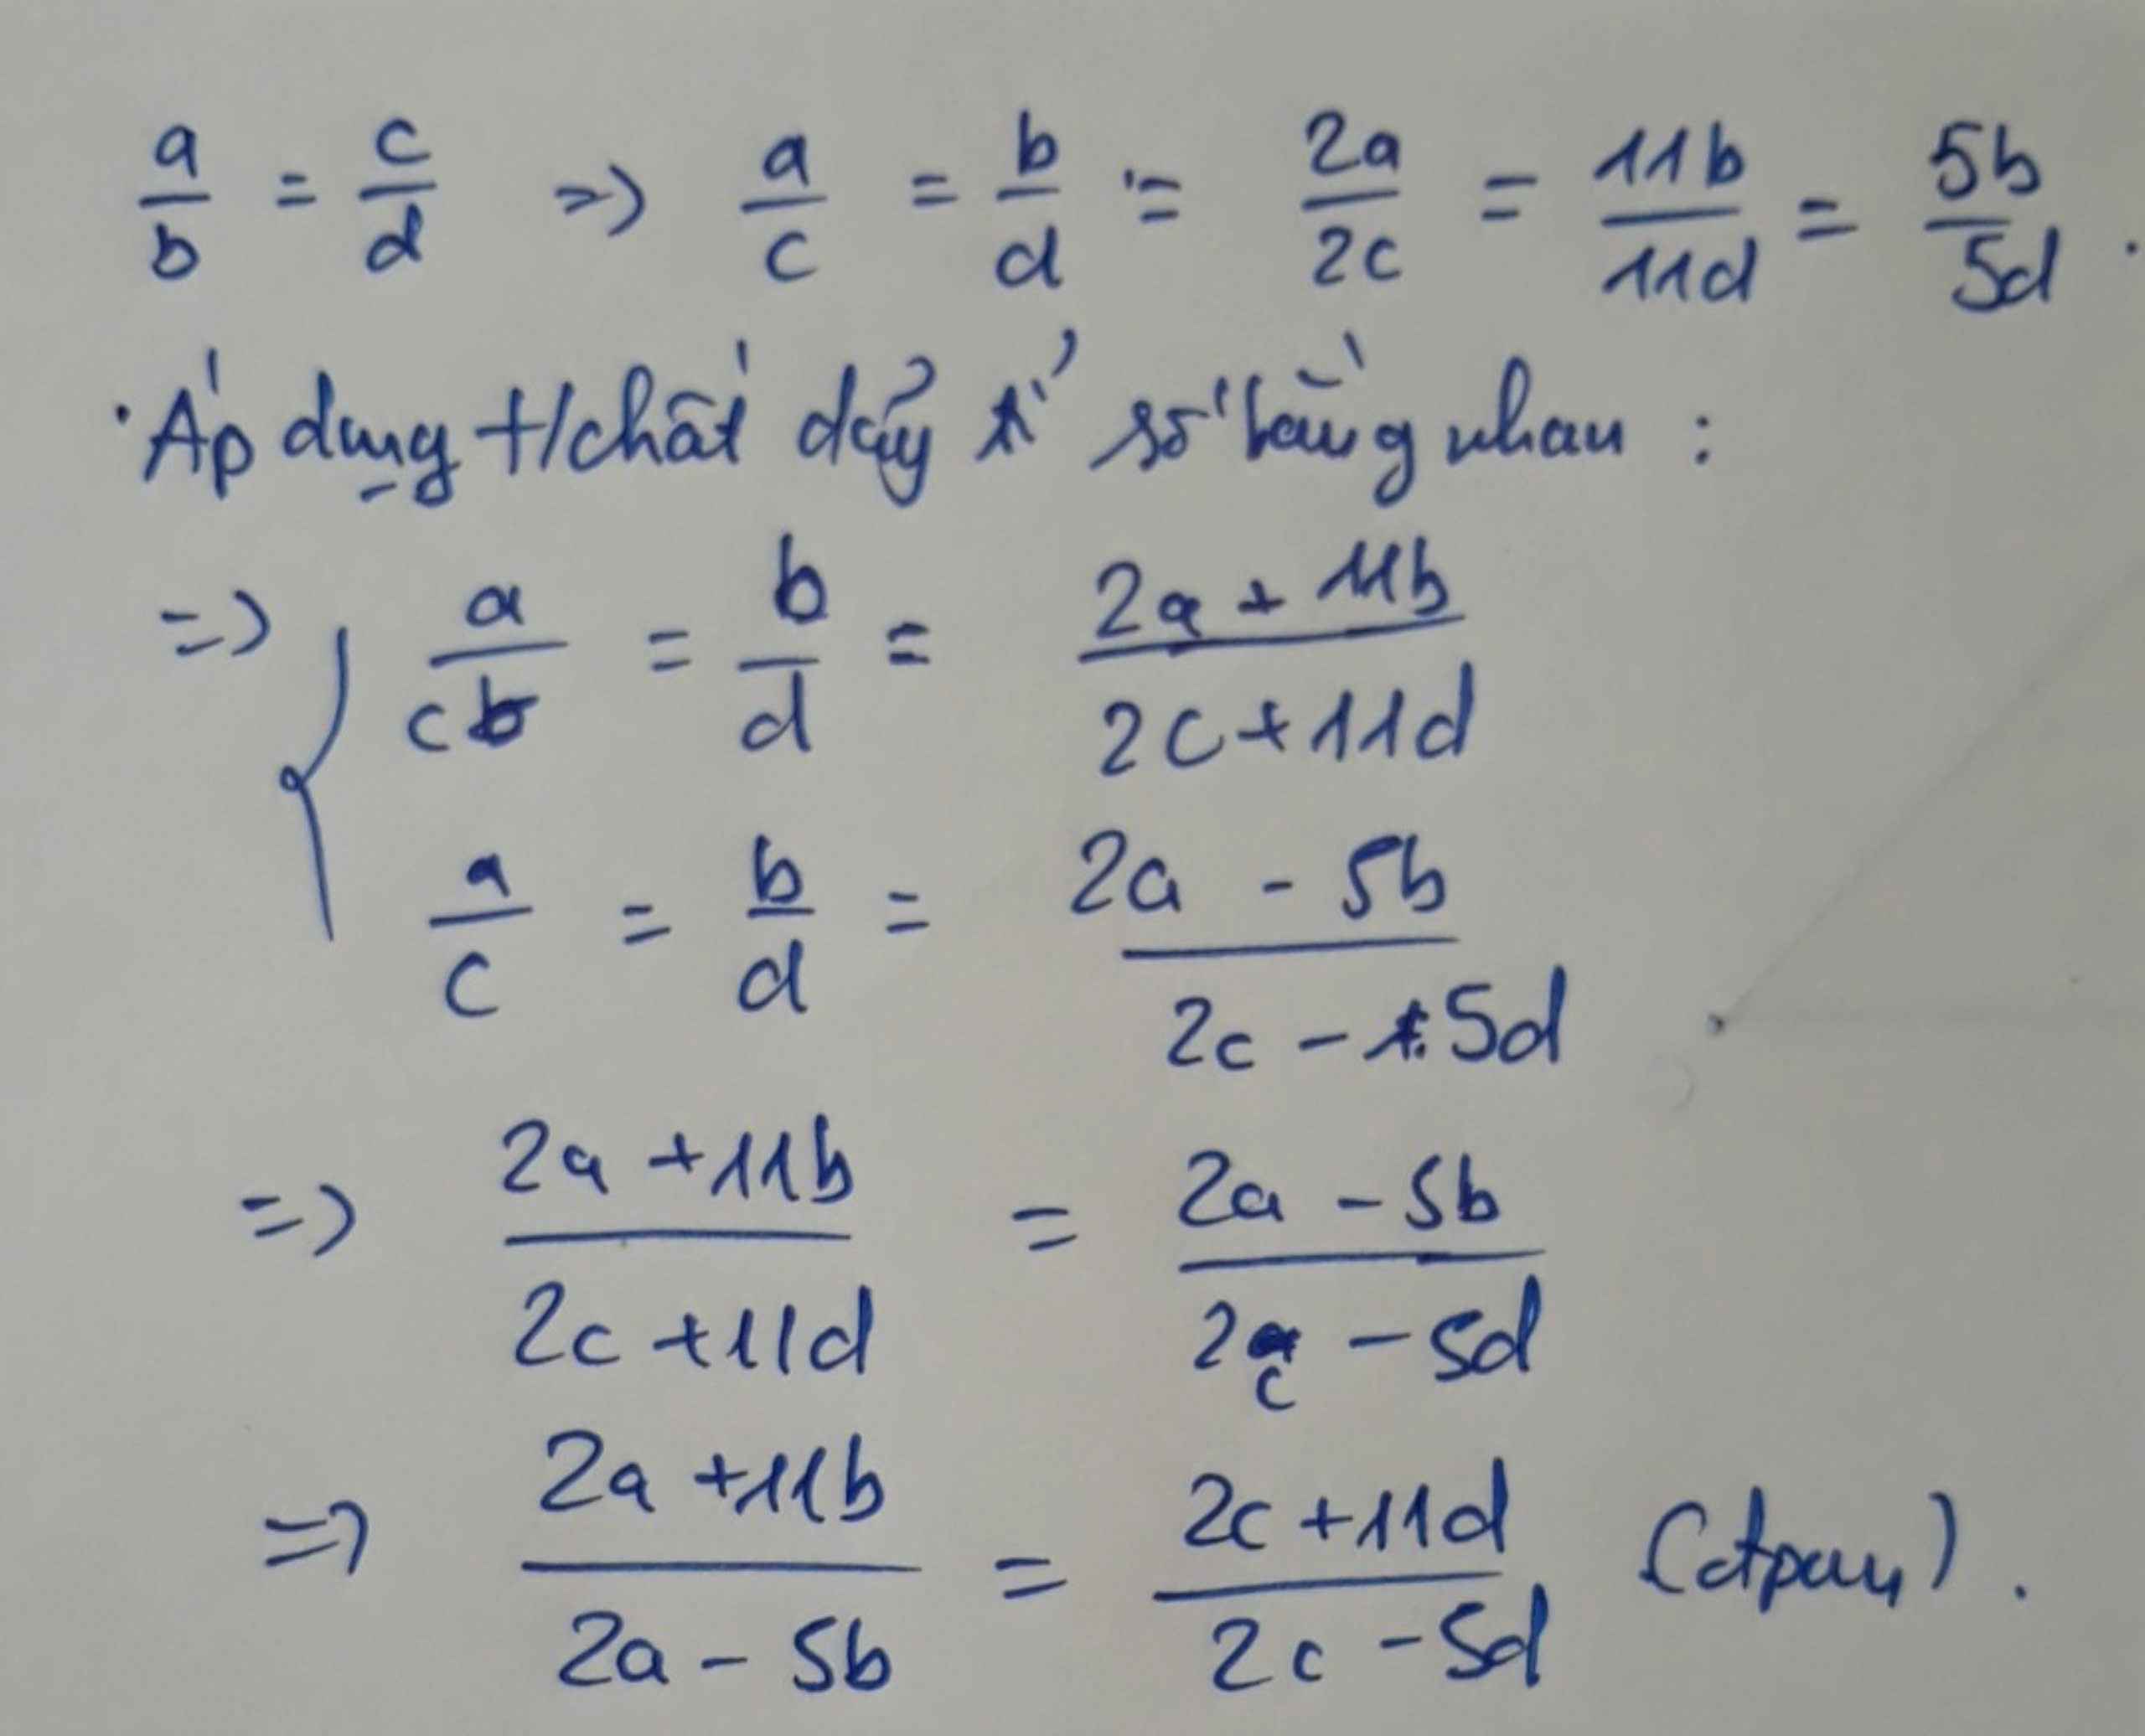 a/b = c/d => a/c = b/d = 2a/2c = 11b/11d = 5b/5d .
. Áp dụng t/chất dãy tỉ số bằng nhau :
=> { a/c = b/d = (2a + 11b)/(2c + 11d)
a/c = b/d = (2a - 5b)/(2c - 5d)
=> (2a + 11b)/(2c + 11d) = (2a - 5b)/(2c - 5d)
=> (2a + 11b)/(2a - 5b) = (2c + 11d)/(2c - 5d) (đpcm) .